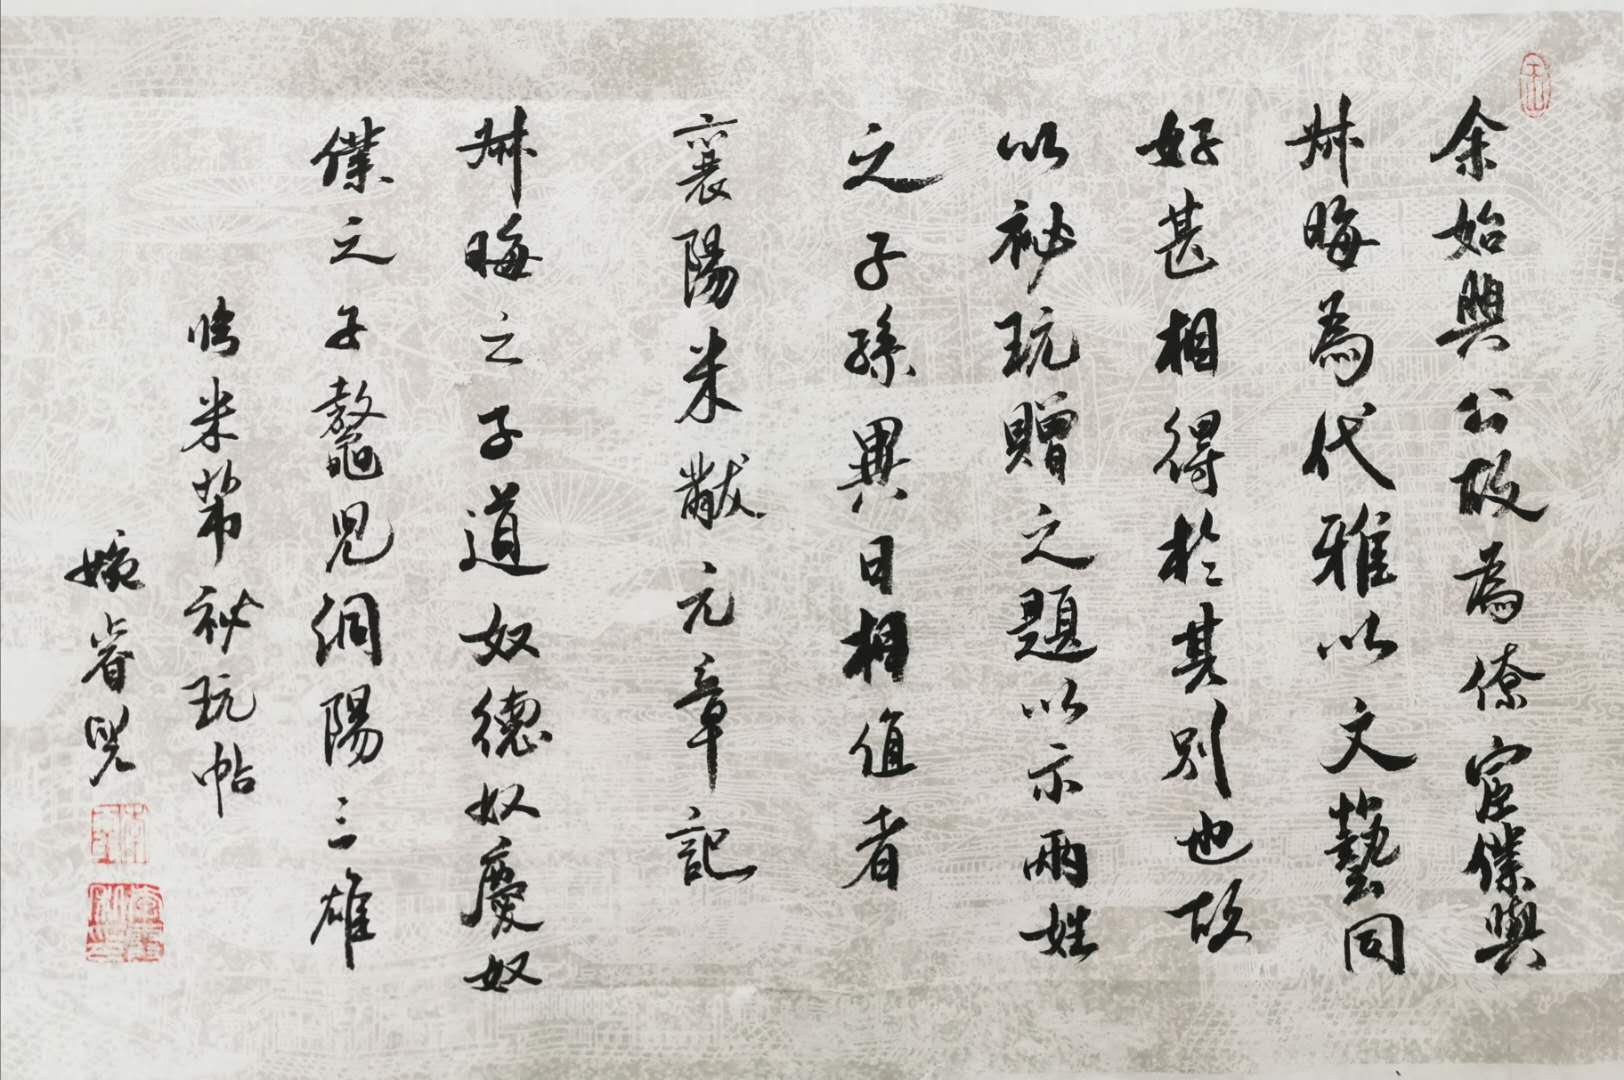 余始興公故為僚宦僕與
叔晦為代雅以文藝同
好甚相得於其別也故
以祕玩贈之題以示兩姓
之子孫異日相值者
襄陽米黻元章記
叔晦之子道奴德奴慶奴
僕之子鼇兒洞陽三雄
臨米芾祕玩帖